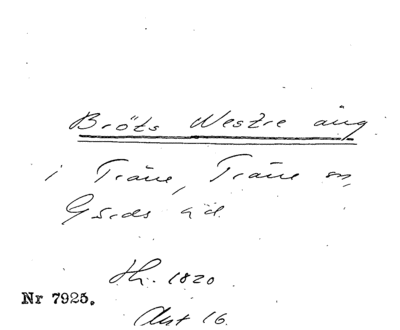 Bröts Westre äng
i Träne, Träne sn,
Gärds hd.
Hr. 1820
Nr 7925.
Akt 16